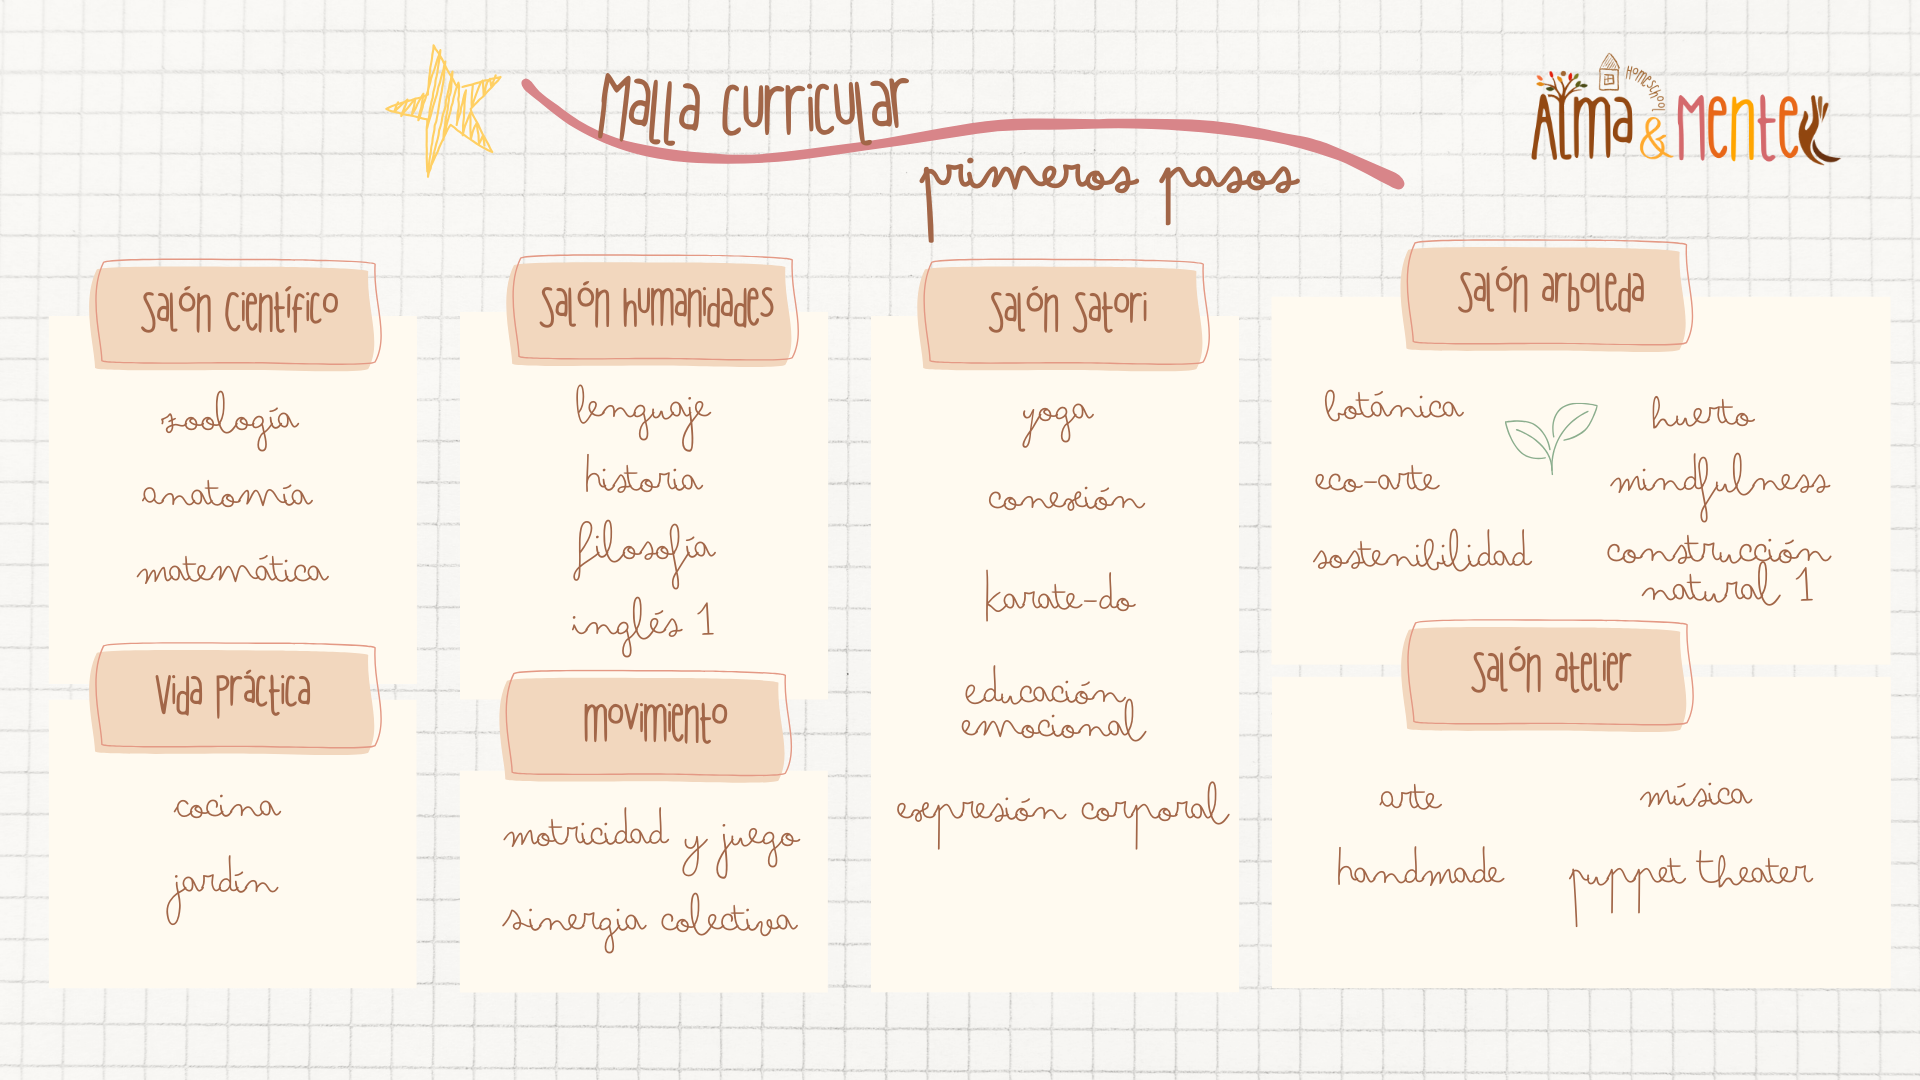 Malla curricular
primeros pasos
Homeschool
Alma & Mente
Salón Científico
zoología
anatomía
matemática
Vida Práctica
cocina
jardín
Salón humanidades
lenguaje
historia
filosofía
inglés 1
movimiento
motricidad y juego
sinergia colectiva
Salón Satori
yoga
conexión
karate-do
educación
emocional
expresión corporal
Salón arboleda
botánica
huerto
eco-arte
mindfulness
sostenibilidad
construcción
natural 1
Salón atelier
arte
música
handmade
puppet theater